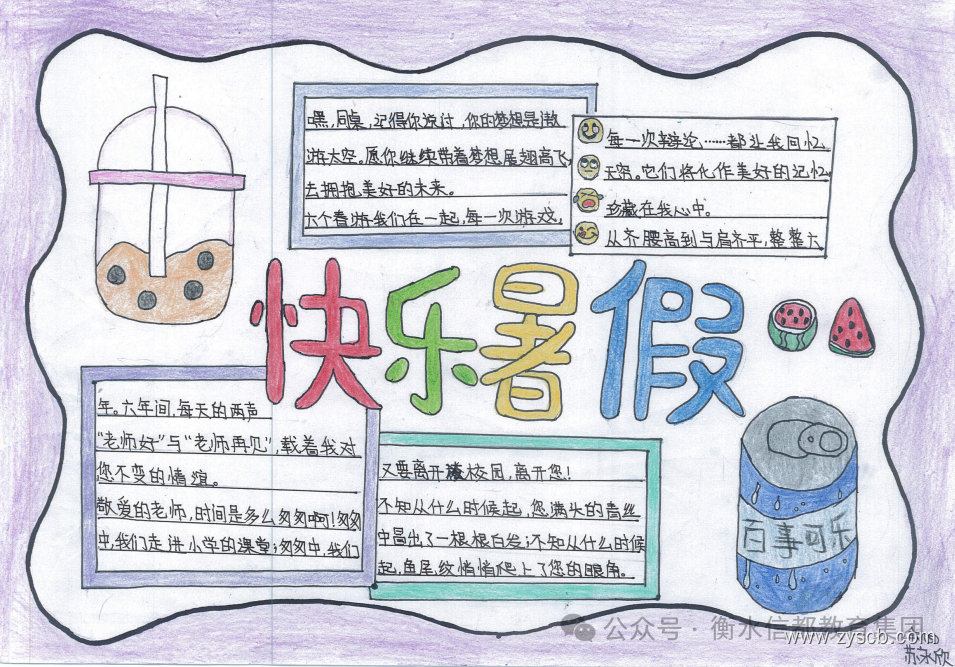 嘿,同桌,记得你说过,你的梦想是遨
游太空。愿你继续带着梦想展翅高飞,
去拥抱美好的未来。
六个春游我们在一起,每一次游戏,
每一次辩论……都让我回忆
无穷。它们将化作美好的记忆
珍藏在我心中。
从齐腰高到与肩齐平,整整六
快乐暑假
年。六年间,每天的两声
“老师好”与“老师再见”,载着我对
您不变的情谊。
敬爱的老师,时间是多么匆匆啊!匆匆
中,我们走进小学的课堂;匆匆中,我们
又要离开校园,离开您!
不知从什么时候起,您满头的青丝
中冒出了一根根白发;不知从什么时候
起,鱼尾纹悄悄爬上了您的眼角。
百事可乐
公众号·衡水信都教育集团
www.zyscb.com
苏永欣